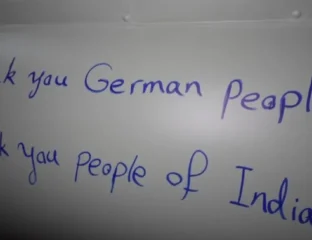 k you German Peopl
k you people of India